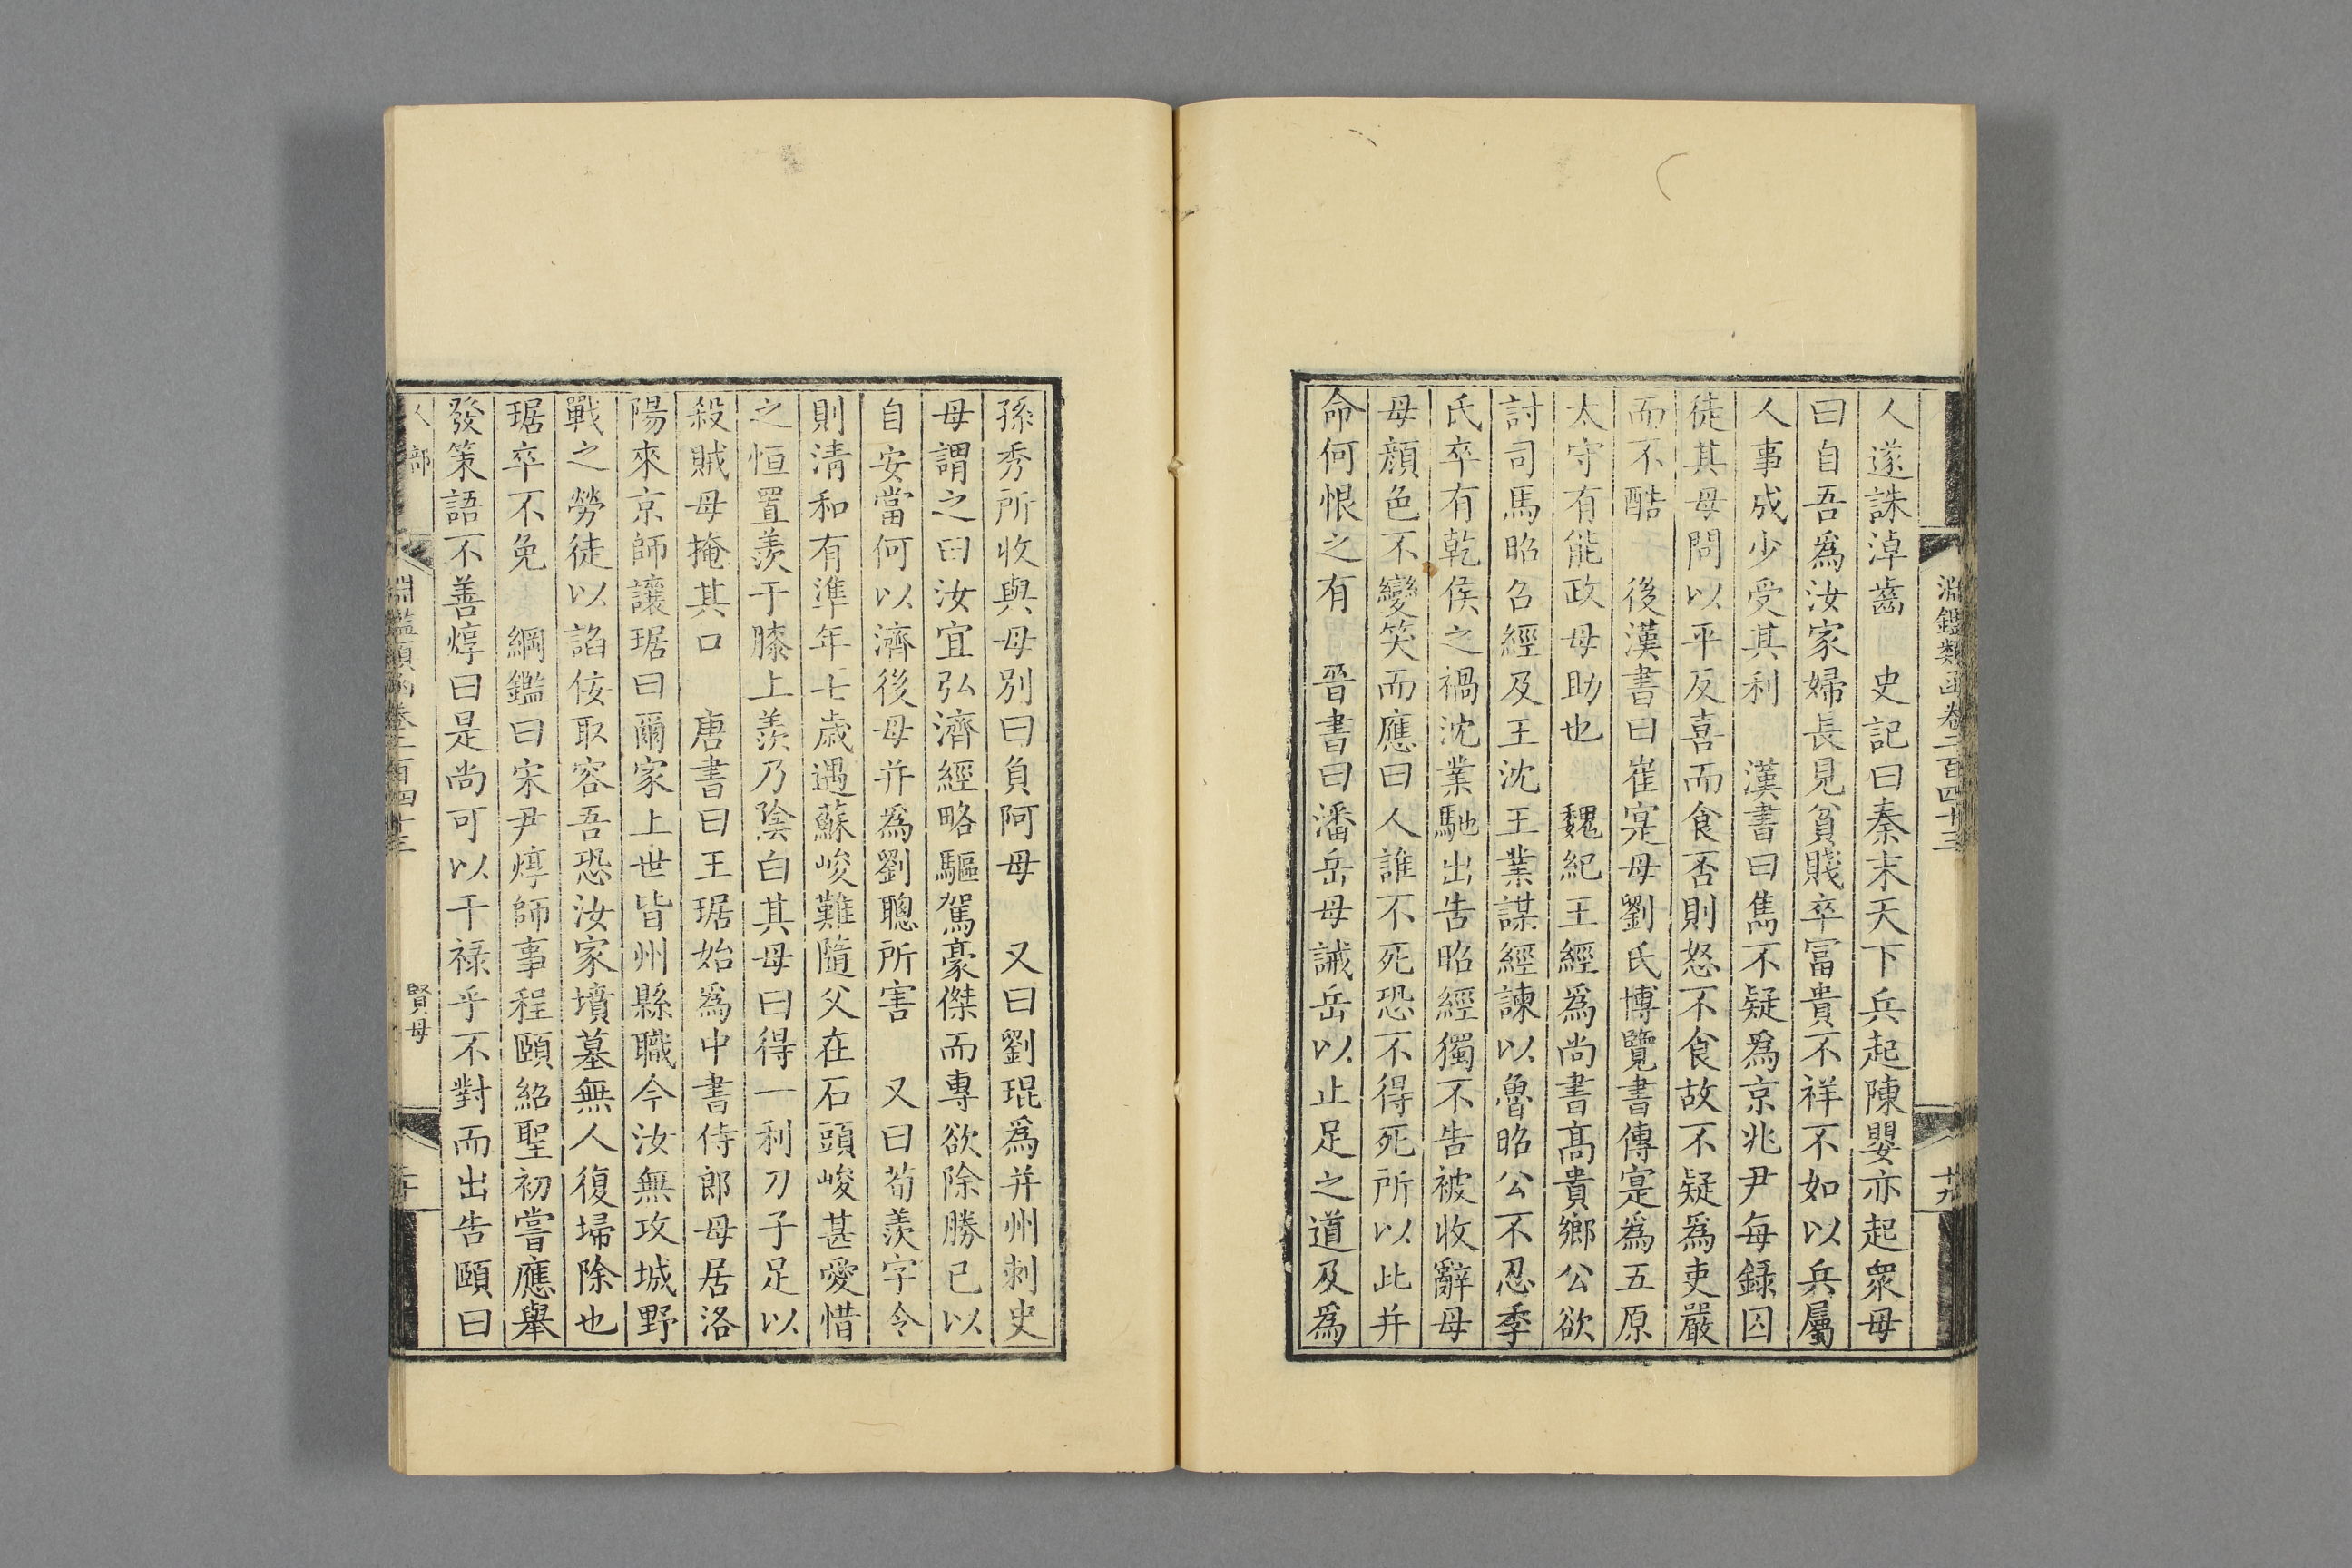 淵鑑類函卷二百四十三
十九
人遂誅淖齒　史記曰秦末天下兵起陳嬰亦起衆母
曰自吾爲汝家婦長見貧賤卒冨貴不祥不如以兵屬
人事成少受其利　漢書曰雋不疑爲京兆尹每録囚
徒其母問以平反喜而食否則怒不食故不疑爲吏嚴
而不酷　後漢書曰崔寔母劉氏博覽書傳寔爲五原
太守有能政母助也　魏紀王經爲尚書髙貴鄉公欲
討司馬昭召經及王沈王業謀經諫以魯昭公不忍季
氏卒有乾侯之禍沈業馳出告昭經獨不告被收辭母
母顔色不變笑而應曰人誰不死恐不得死所以此并
命何恨之有　晉書曰潘岳母誡岳以止足之道及爲
孫秀所收與母別曰負阿母　又曰劉琨爲并州刺史
母謂之曰汝宜弘濟經略驅駕豪傑而專欲除勝己以
自安當何以濟後母并爲劉聰所害　又曰荀羨字令
則清和有準年七歳遇蘇峻難隨父在石頭峻甚愛惜
之恒置羨于膝上羨乃陰白其母曰得一利刀子足以
殺賊母掩其口　唐書曰王琚始爲中書侍郎母居洛
陽來京師讓琚曰爾家上世皆州縣職今汝無攻城野
戰之勞徒以諂佞取容吾恐汝家墳墓無人復埽除也
琚卒不免　綱鑑曰宋尹焞師事程頤紹聖初嘗應舉
發策語不善焞曰是尚可以干禄乎不對而出告頤曰
人部
淵鑑類函卷二百四十三
賢母
二十